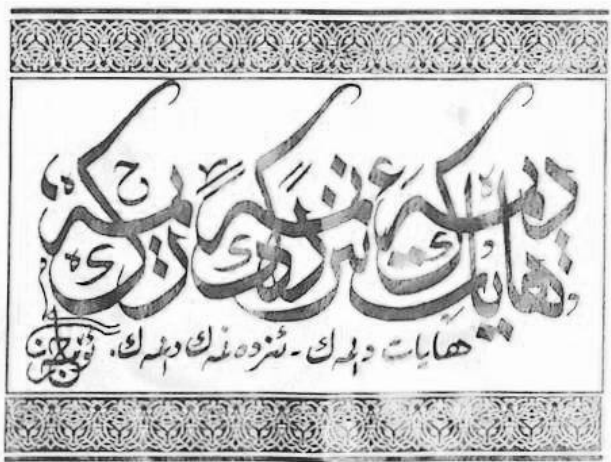 هايات دېمەك ئىزدەنمەك دېمەك
هايات دېمەك - ئىزدەنمەك دېمەك.